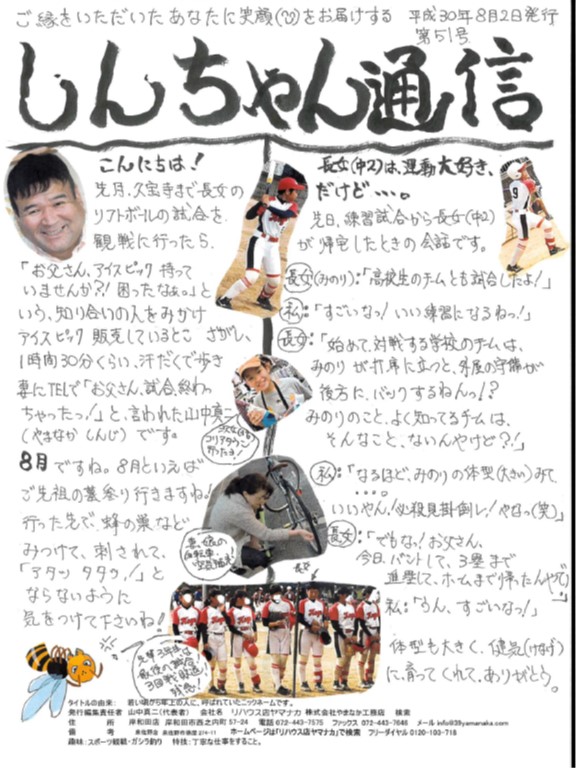 ご縁をいただいたあなたに笑顔(😊)をお届けする 平成30年8月2日発行
第51号
しんちゃん通信
こんにちは!
先月、久宝寺まで長女の
ソフトボールの試合を
観戦に行ったら、
「お父さん、アイスピック持って
いませんか?!困ったなぁ。」と
いう、知り合いの人をみかけ
アイスピック販売しているとこ さがし、
1時間30分くらい、汗だくで歩き
妻にTELで「お父さん、試合、終わっ
ちゃったっ!」と、言われた山中真二
(やまなか しんじ)です。
8月ですね。8月といえば
ご先祖の墓参り行きますね!
行った先で、蜂の巣など
みつけて、刺されて、
「アタッ タタッ!」と
ならないように
気をつけて下さいね!
長女(中2)は、運動大好き、
だけど…。
先日、練習試合から長女(中2)
が帰宅したときの会話です。
長女(みのり):「高校生のチームとも試合したよ!」
私:「すごいなっ!いい練習になるねっ!」
長女:「始めて、対戦する学校のチームは、
みのりが打席に立つと、外野の守備が
後方に、バックするねんっ!?
みのりのこと、よく知ってるチームは、
そんなこと、ないんやけど?!」
私:「なるほど、みのりの体型(大きい)みて、
…。
いいやん!必殺見掛倒し!やなっ(笑)」
長女:「でもな!お父さん、
今日、バントして、3塁まで
進塁して、ホームまで帰ったんやで」
私:「うん、すごいなっ!」
体型も大きく、健気(けなげ)
に、育ってくれて、ありがとう。
コリアタウン
行ったヨ!
妻、娘の
自転車
長女
最後の試合
3回戦敗退!
残念!
タイトルの由来: 若い頃から年上の人に、呼ばれていたニックネームです。
発行編集責任者 山中真二(代表者) 会社名 リハウス店ヤマナカ 株式会社やまなか工務店 検索
住 所 岸和田店 岸和田市西之内町57-24 電話 072-443-7575 ファックス 072-443-7646 メール info@39yamanaka.com
備 考 泉佐野店 ホームページは「リハウス店ヤマナカ」で検索 フリーダイヤル 0120-103-718
趣味:スポーツ観戦・ガシラ釣り 特技:丁寧な仕事をすること。